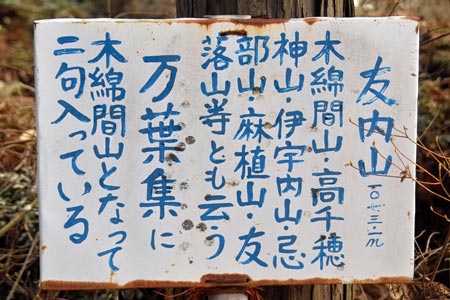 友内山 一〇七三・一m
木綿間山・高千穂
神山・伊宇内山・忌
部山・麻植山・友
落山等とも云う
万葉集に
木綿間山となって
二句入っている